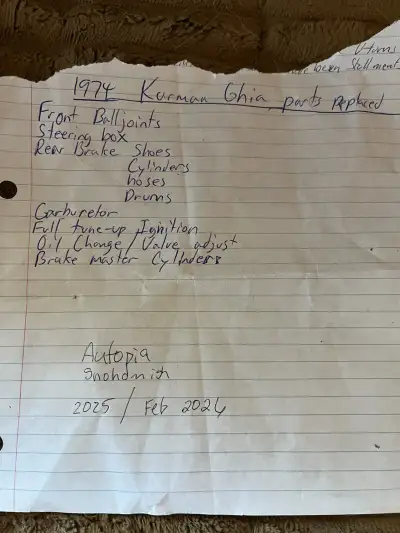 Items
been
1974 Karman Ghia parts replaced
Front Balljoints
Steering box
Rear Brake Shoes
Cylinders
hoses
Drums
Carburetor
Full tune-up Ignition
Oil Change/Valve adjust
Brake master Cylinders
Autopia
Snohomish
2025 / Feb 2026